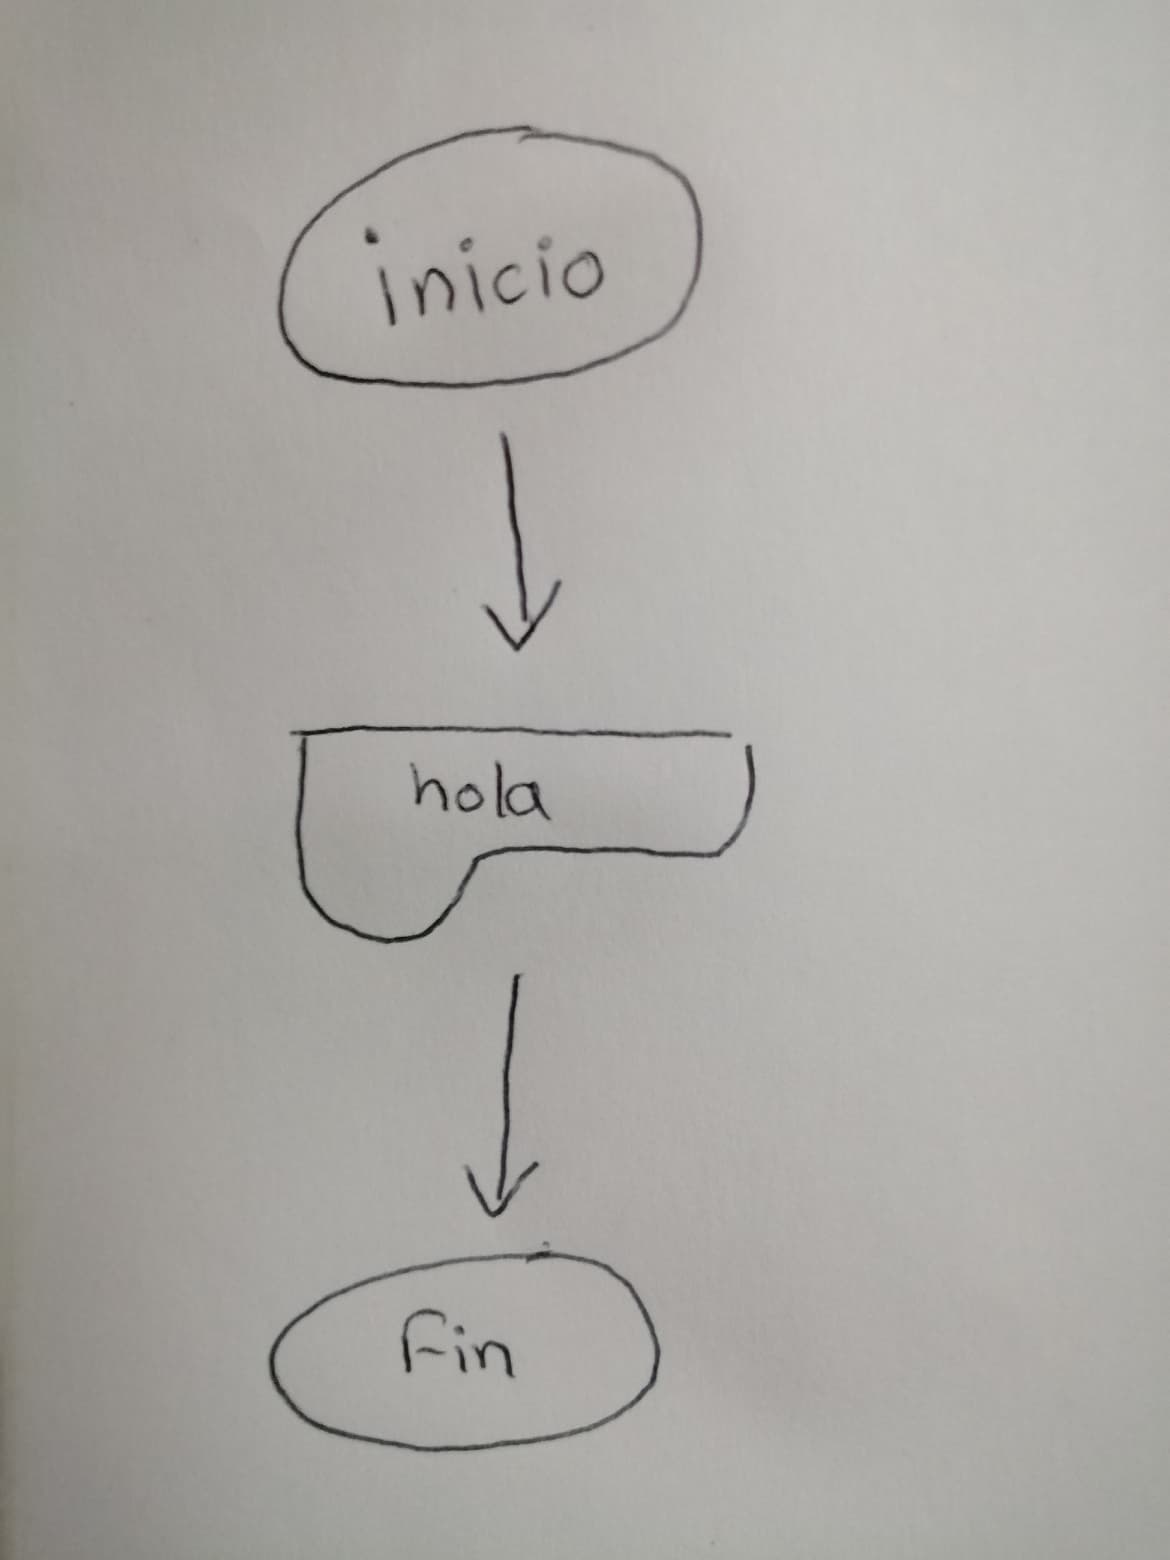 inicio
hola
Fin